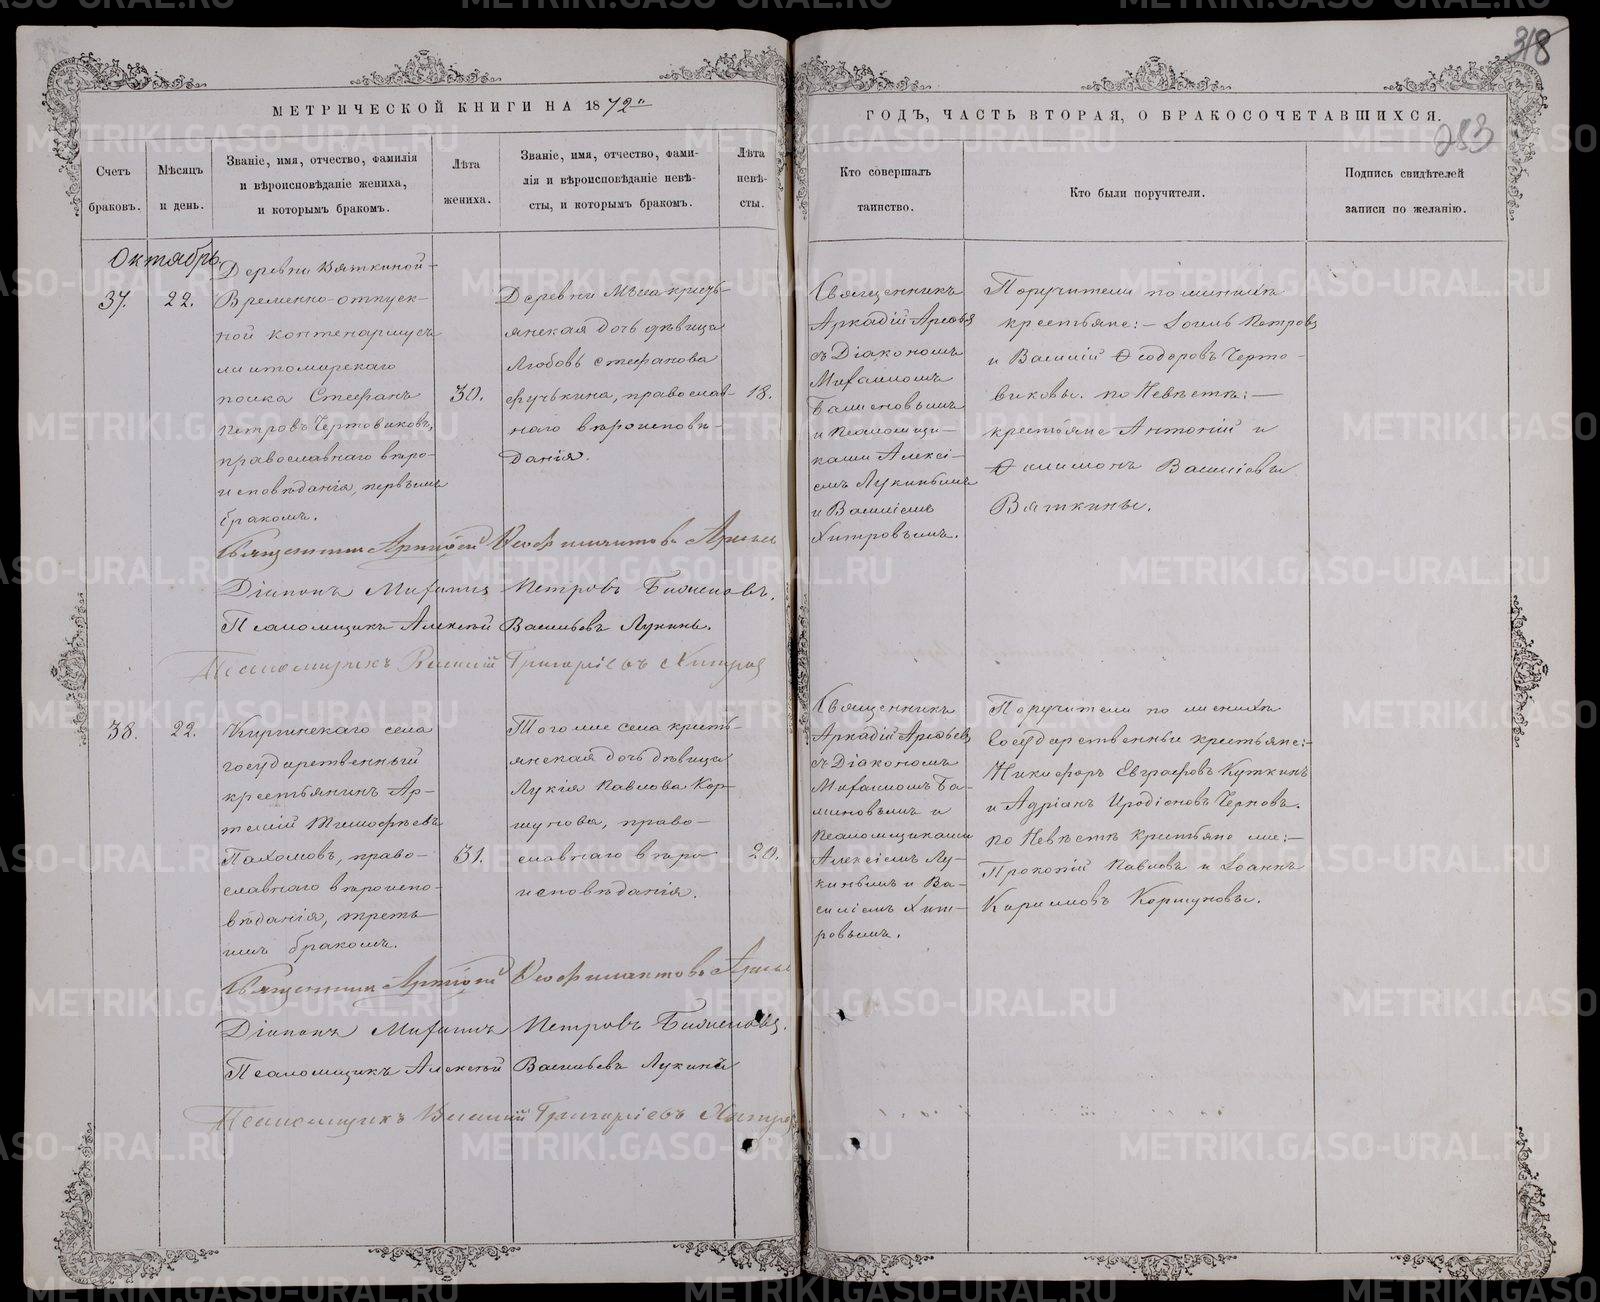 318
283
МЕТРИЧЕСКОЙ КНИГИ НА 1872
ГОДЪ, ЧАСТЬ ВТОРАЯ, О БРАКОСОЧЕТАВШИХСЯ.
Счетъ
браковъ.
Мѣсяцъ
и день.
Званіе, имя, отчество, фамилія
и вѣроисповѣданіе жениха,
и которымъ бракомъ.
Лѣта
жениха.
Званіе, имя, отчество, фами-
лія и вѣроисповѣданіе невѣ-
сты, и которымъ бракомъ.
Лѣта
невѣ-
сты.
Кто совершалъ
таинство.
Кто были поручители.
Подпись свидѣтелей
записи по желанію.
Октябрь.
37.
22.
Деревни Вяткиной
Временно-отпуск-
ной
полка Стефанъ
Петровъ Чертовиковъ,
православнаго вѣро-
исповѣданія, первымъ
бракомъ.
30.
Деревни Мыса кресть-
янская дочь дѣвица
Любовь Стефанова
Ѳучькина, православ-
наго вѣроисповѣ-
данія.
18.
Священникъ
Аркадій Арефьевъ
съ Діакономъ
и Псаломщи-
ками Алексі-
емъ Лукинымъ
и Василіемъ
Хитровымъ.
Поручители по женихѣ
крестьяне:- Іоиль Петровъ
и Василій Ѳеодоровъ Черто-
виковы. по Невѣстѣ:-
крестьяне Антоній и
Филимонъ Василіевы
Вяткины.
Священникъ Аркадій Ѳеофилактовъ Арефьевъ
Діаконъ Петровъ
Псаломщикъ Алексѣй Васильевъ Лукинъ.
Псаломщикъ Василій Григоріевъ Хитровъ
38.
22.
Киргинскаго села
государственный
крестьянинъ Ар-
темій Тимофѣевъ
Пахомовъ, право-
славнаго вѣроиспо-
вѣданія, треть-
имъ бракомъ.
31.
Того же села кресть-
янская дочь дѣвица
Лукія Павлова Кор-
шунова, право-
славнаго вѣро
исповѣданія.
20.
Священникъ
Аркадій Арефьевъ
съ Діакономъ
и
Псаломщиками
Алексіемъ Лу-
кинымъ и Ва-
силіемъ Хит-
ровымъ.
Поручители по женихѣ
Государственные крестьяне:-
Никифоръ Евграфовъ Куткинъ
и Адріанъ Иродіоновъ Черновъ.
по Невѣстѣ Крестьяне же:-
Прокопій Павловъ и Іоаннъ
Кирилловъ Коршуновы.
Священникъ Аркадій Ѳеофилактовъ Арефьевъ
Діаконъ Петровъ
Псаломщикъ Алексѣй Васильевъ Лукинъ
Псаломщикъ Василій Григоріевъ Хитровъ
METRIKI.GASO-URAL.RU